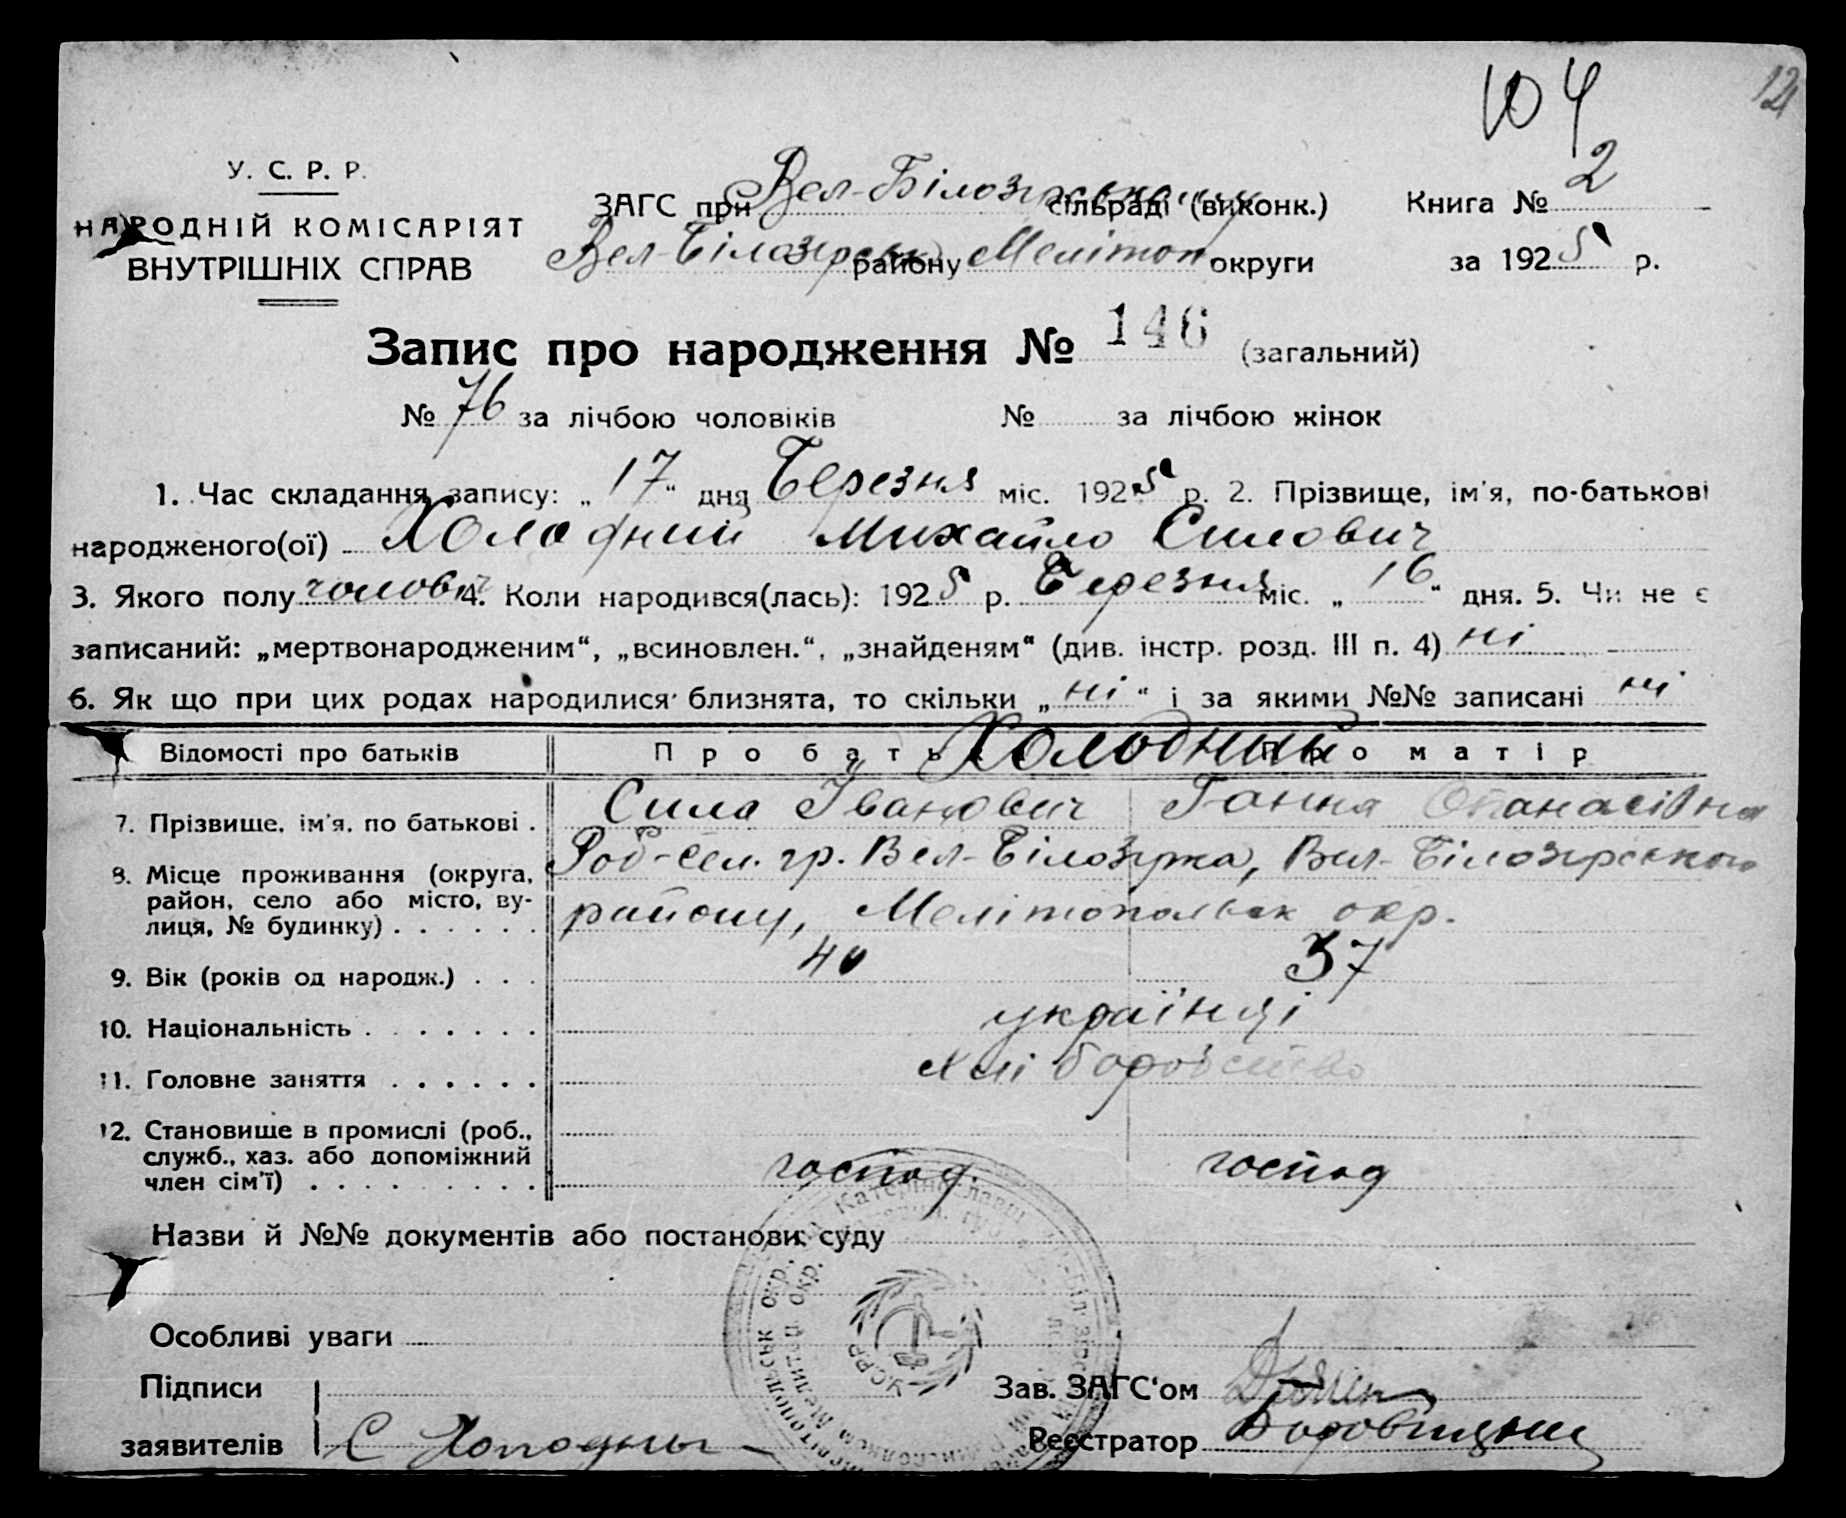 104
12
У. С. Р. Р.
НАРОДНІЙ КОМІСАРІЯТ
ВНУТРІШНІХ СПРАВ
ЗАГС при Вел-Білозерському сільраді (виконк.) Книга № 2
Вел-Білозерськ району Мелітоп округи за 1925 р.
Запис про народження № 146 (загальний)
№ 76 за лічбою чоловіків № за лічбою жінок
1. Час складання запису: „17“ дня Березня міс. 1925 р. 2. Прізвище, ім'я, по-батькові
народженого(ої) Холодний Михайло Силович
3. Якого полу чолов 4. Коли народився(лась): 1925 р. Березня міс. „16“ дня. 5. Чи не є
записаний: „мертвонародженим“, „всиновлен.“, „знайденям“ (див. інстр. розд. III п. 4) ні
6. Як що при цих родах народилися близнята, то скільки „ні“ і за якими №№ записані ні
Відомості про батьків Про батька Про матір
Холодний
7. Прізвище, ім'я, по батькові . Сила Іванович Ганна Опанасівна
8. Місце проживання (округа, район, село або місто, вулиця, № будинку) . . . . . . Род-сел. гр. Вел-Білозерка, Вел-Білозерського
району, Мелітопольск окр.
9. Вік (років од народж.) . . . 40 37
10. Національність . . . . . . . українці
11. Головне заняття . . . . . . хліборобство
12. Становище в промислі (роб., служб., хаз. або допоміжний член сім'ї) . . . . . . . . . господ. господ
Назви й №№ документів або постанови суду
Особливі уваги
УСРР
Підписи
заявителів С Холодны
Зав. ЗАГС'ом
Реєстратор